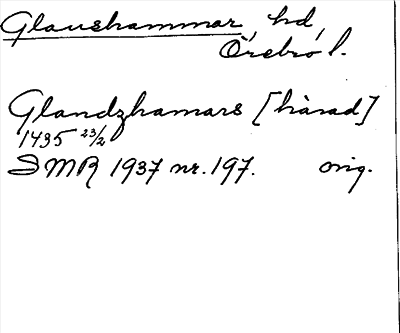 Glanshammar, hd,
Örebro l.
Glandzhamars [härad]
1435 23/2
SMR 1937 nr. 197. orig.